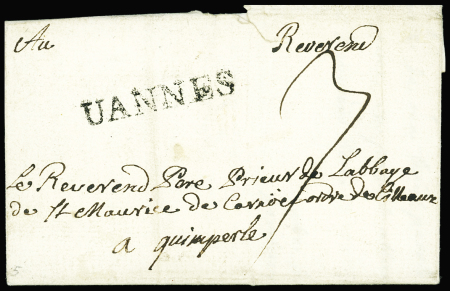 Au Reverend
UANNES
Le Reverend Pere Prieur de Labbaye
de St Maurice de Carnöet ordre de Citteaux
a quimperlé